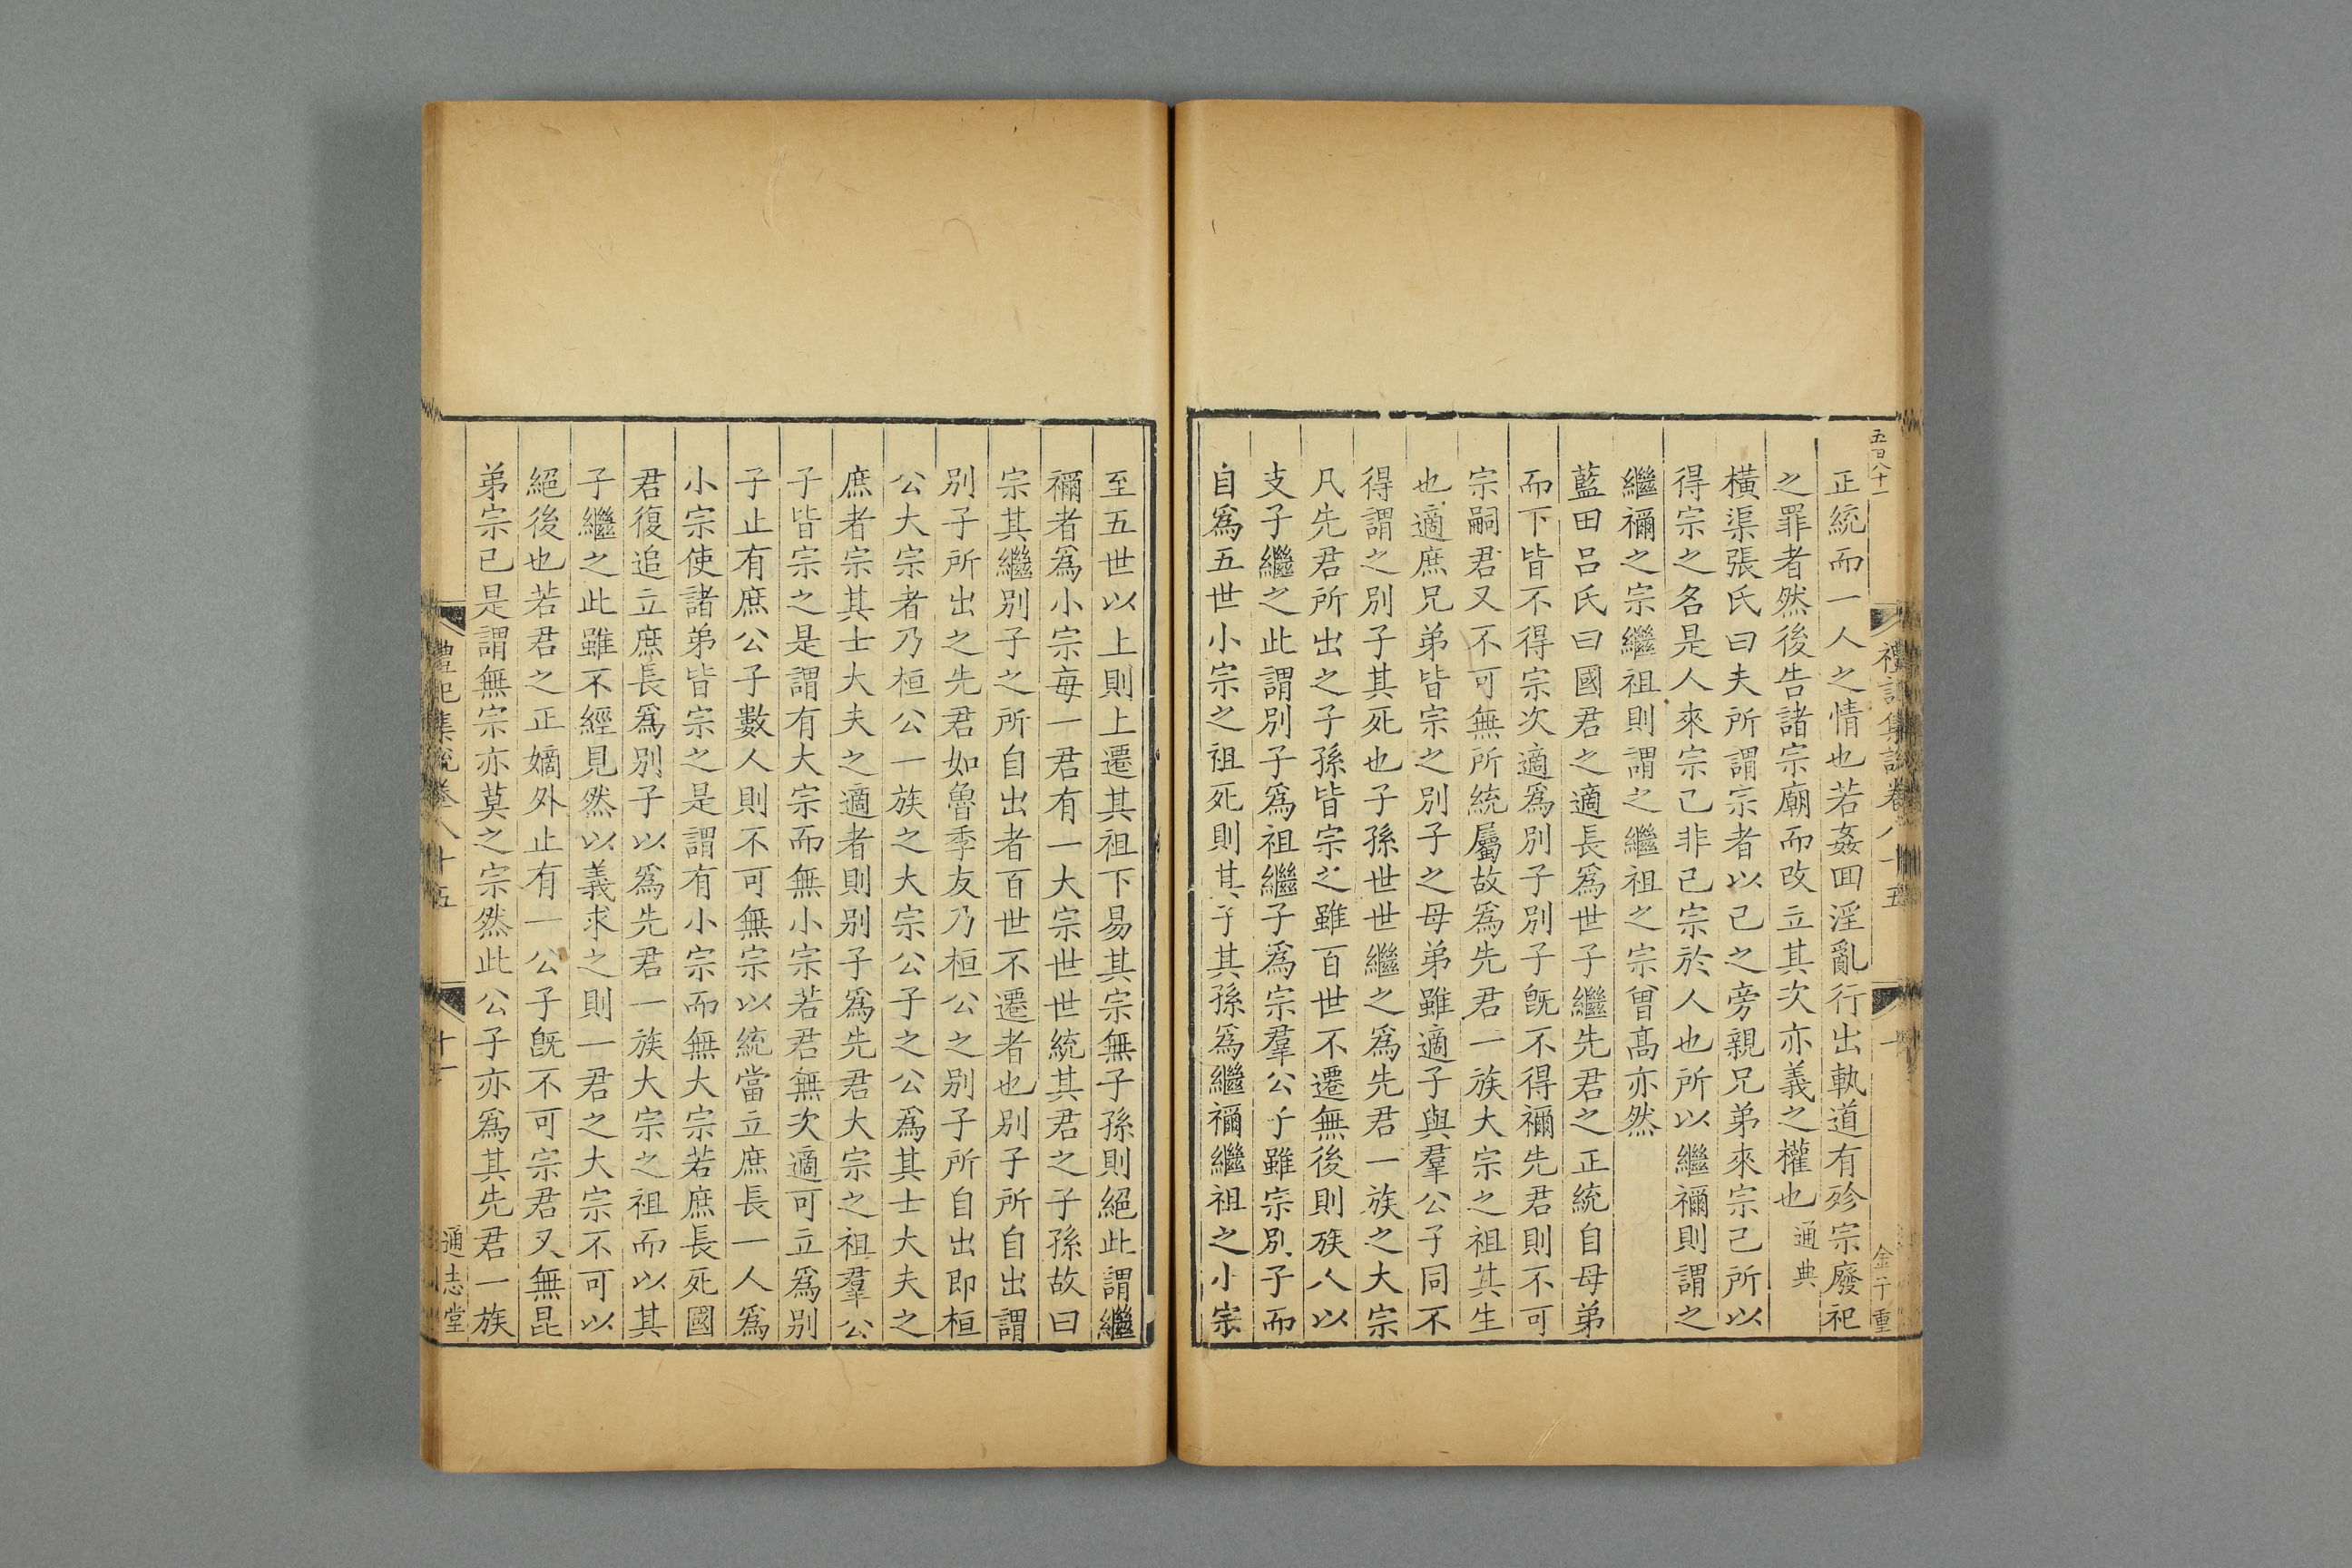 五百八十一
正統而一人之情也若姦回淫亂行出軌道有殄宗廢祀
之罪者然後告諸宗廟而改立其次亦義之權也通典
橫渠張氏曰夫所謂宗者以己之旁親兄弟來宗己所以
得宗之名是人來宗己非己宗於人也所以繼禰則謂之
繼禰之宗繼祖則謂之繼祖之宗曾髙亦然
藍田吕氏曰國君之適長爲世子繼先君之正統自母弟
而下皆不得宗次適爲別子別子旣不得禰先君則不可
宗嗣君又不可無所統屬故爲先君一族大宗之祖其生
也適庶兄弟皆宗之別子之母弟雖適子與羣公子同不
得謂之別子其死也子孫世世繼之爲先君一族之大宗
凡先君所出之子孫皆宗之雖百世不遷無後則族人以
支子繼之此謂別子爲祖繼子爲宗羣公子雖宗別子而
自爲五世小宗之祖死則其子其孫爲繼禰繼祖之小宗
至五世以上則上遷其祖下易其宗無子孫則絕此謂繼
禰者爲小宗每一君有一大宗世世統其君之子孫故曰
宗其繼別子之所自出者百世不遷者也別子所自出謂
別子所出之先君如魯季友乃桓公之別子所自出即桓
公大宗者乃桓公一族之大宗公子之公爲其士大夫之
庶者宗其士大夫之適者則別子爲先君大宗之祖羣公
子皆宗之是謂有大宗而無小宗若君無次適可立爲別
子止有庶公子數人則不可無宗以統當立庶長一人爲
小宗使諸弟皆宗之是謂有小宗而無大宗若庶長死國
君復追立庶長爲別子以爲先君一族大宗之祖而以其
子繼之此雖不經見然以義求之則一君之大宗不可以
絕後也若君之正嫡外止有一公子旣不可宗君又無昆
弟宗已是謂無宗亦莫之宗然此公子亦爲其先君一族
禮記集說卷八十五
十一
通志堂